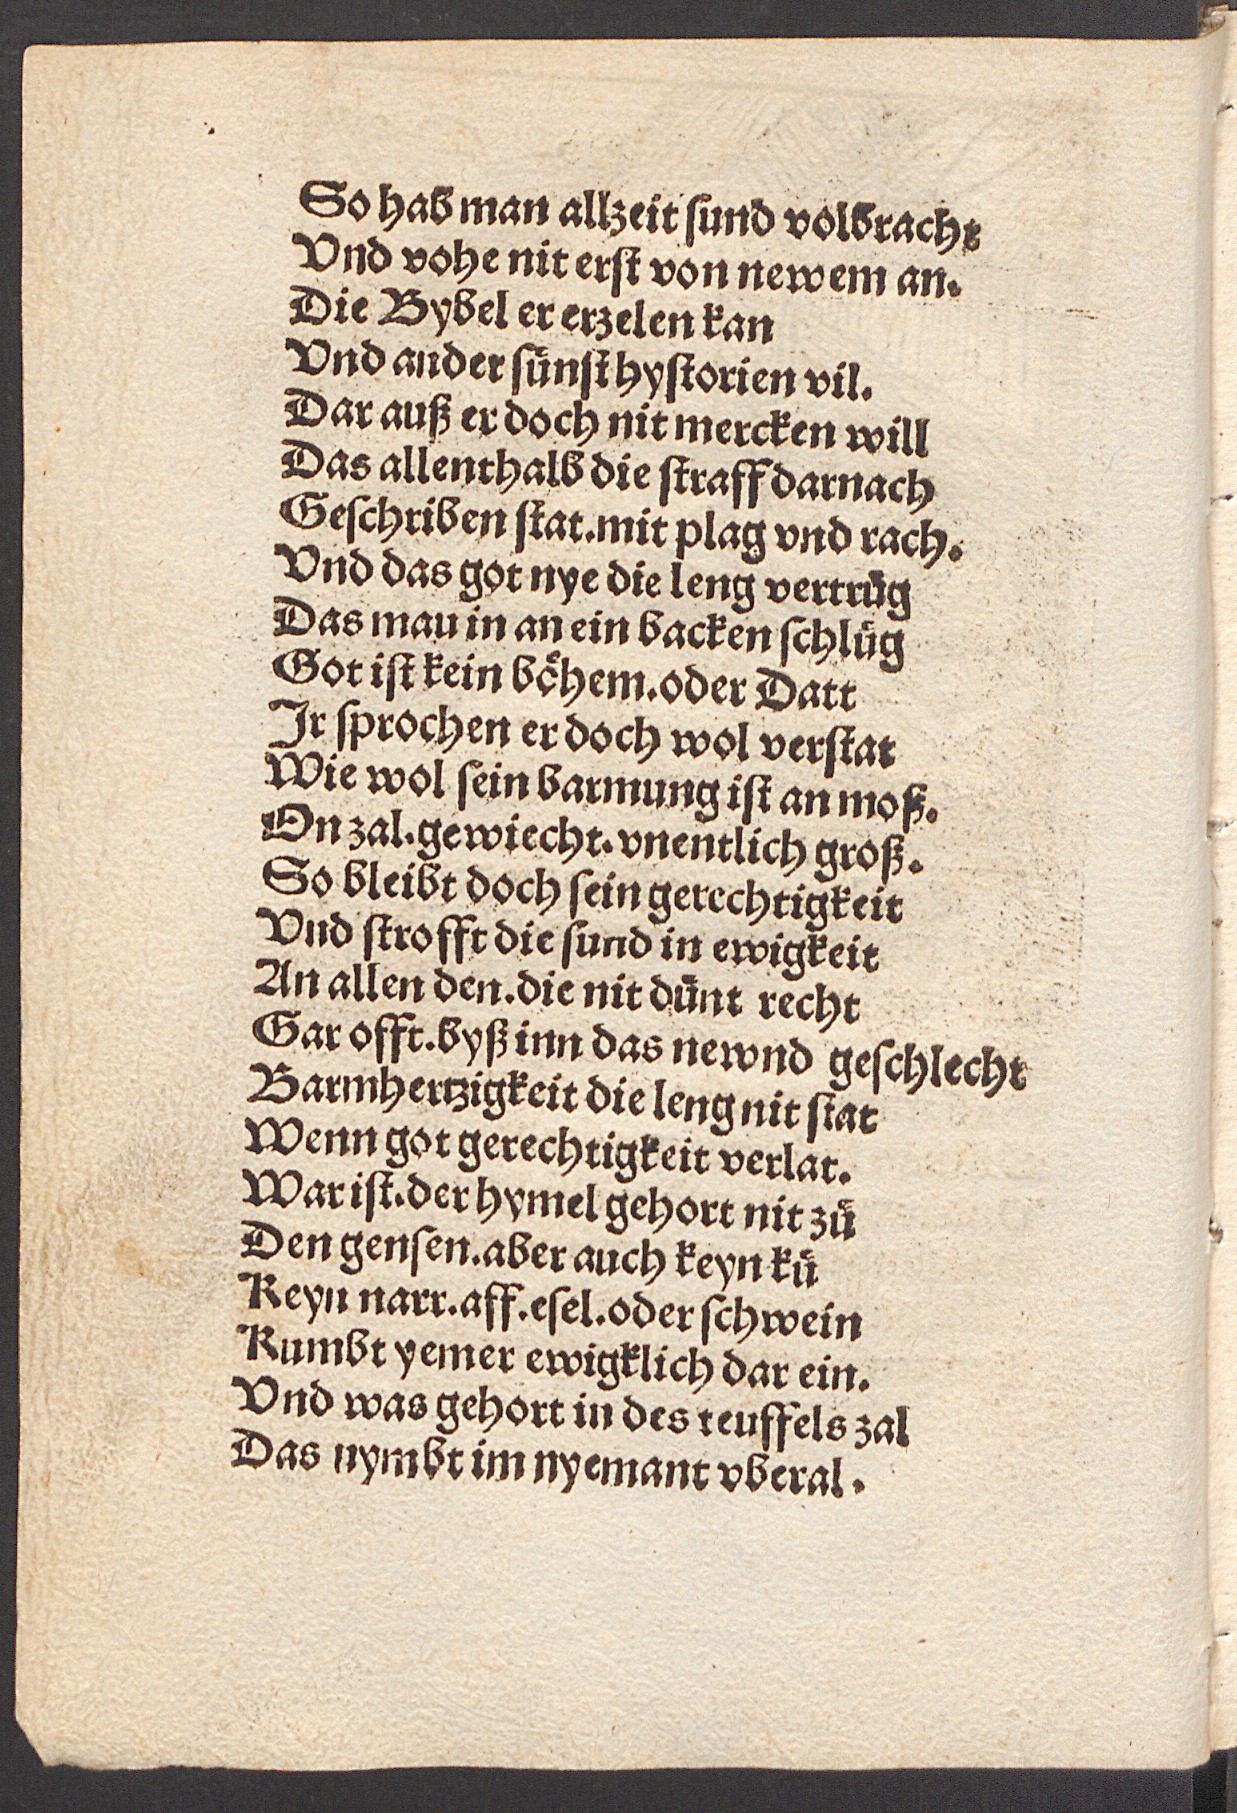 So hab man allzeit sund volbracht
Vnd vohe nit erst von newem an.
Die Bybel er erzelen kan
Vnd ander suͤnst hystorien vil.
Dar auß er doch nit mercken will
Das allenthalb die straff darnach
Geschriben stat.mit plag vnd rach.
Vnd das got nye die leng vertruͤg
Das mau in an ein backen schluͤg
Got ist kein boͤhem.oder Datt
Jr sprochen er doch wol verstat
Wie wol sein barmung ist an moß.
On zal.gewiecht.vnentlich groß.
So bleibt doch sein gerechtigkeit
Vnd strofft die sund in ewigkeit
An allen den.die nit duͤnt recht
Gar offt.byß inn das newnd geschlecht
Barmhertzigkeit die leng nit stat
Wenn got gerechtigkeit verlat.
War ist.der hymel gehort nit zuͤ
Den gensen.aber auch keyn kuͤ
Keyn narr.aff.esel.oder schwein
Kumbt yemer ewigklich dar ein.
Vnd was gehort in des teuffels zal
Das nymbt im nyemant vberal.